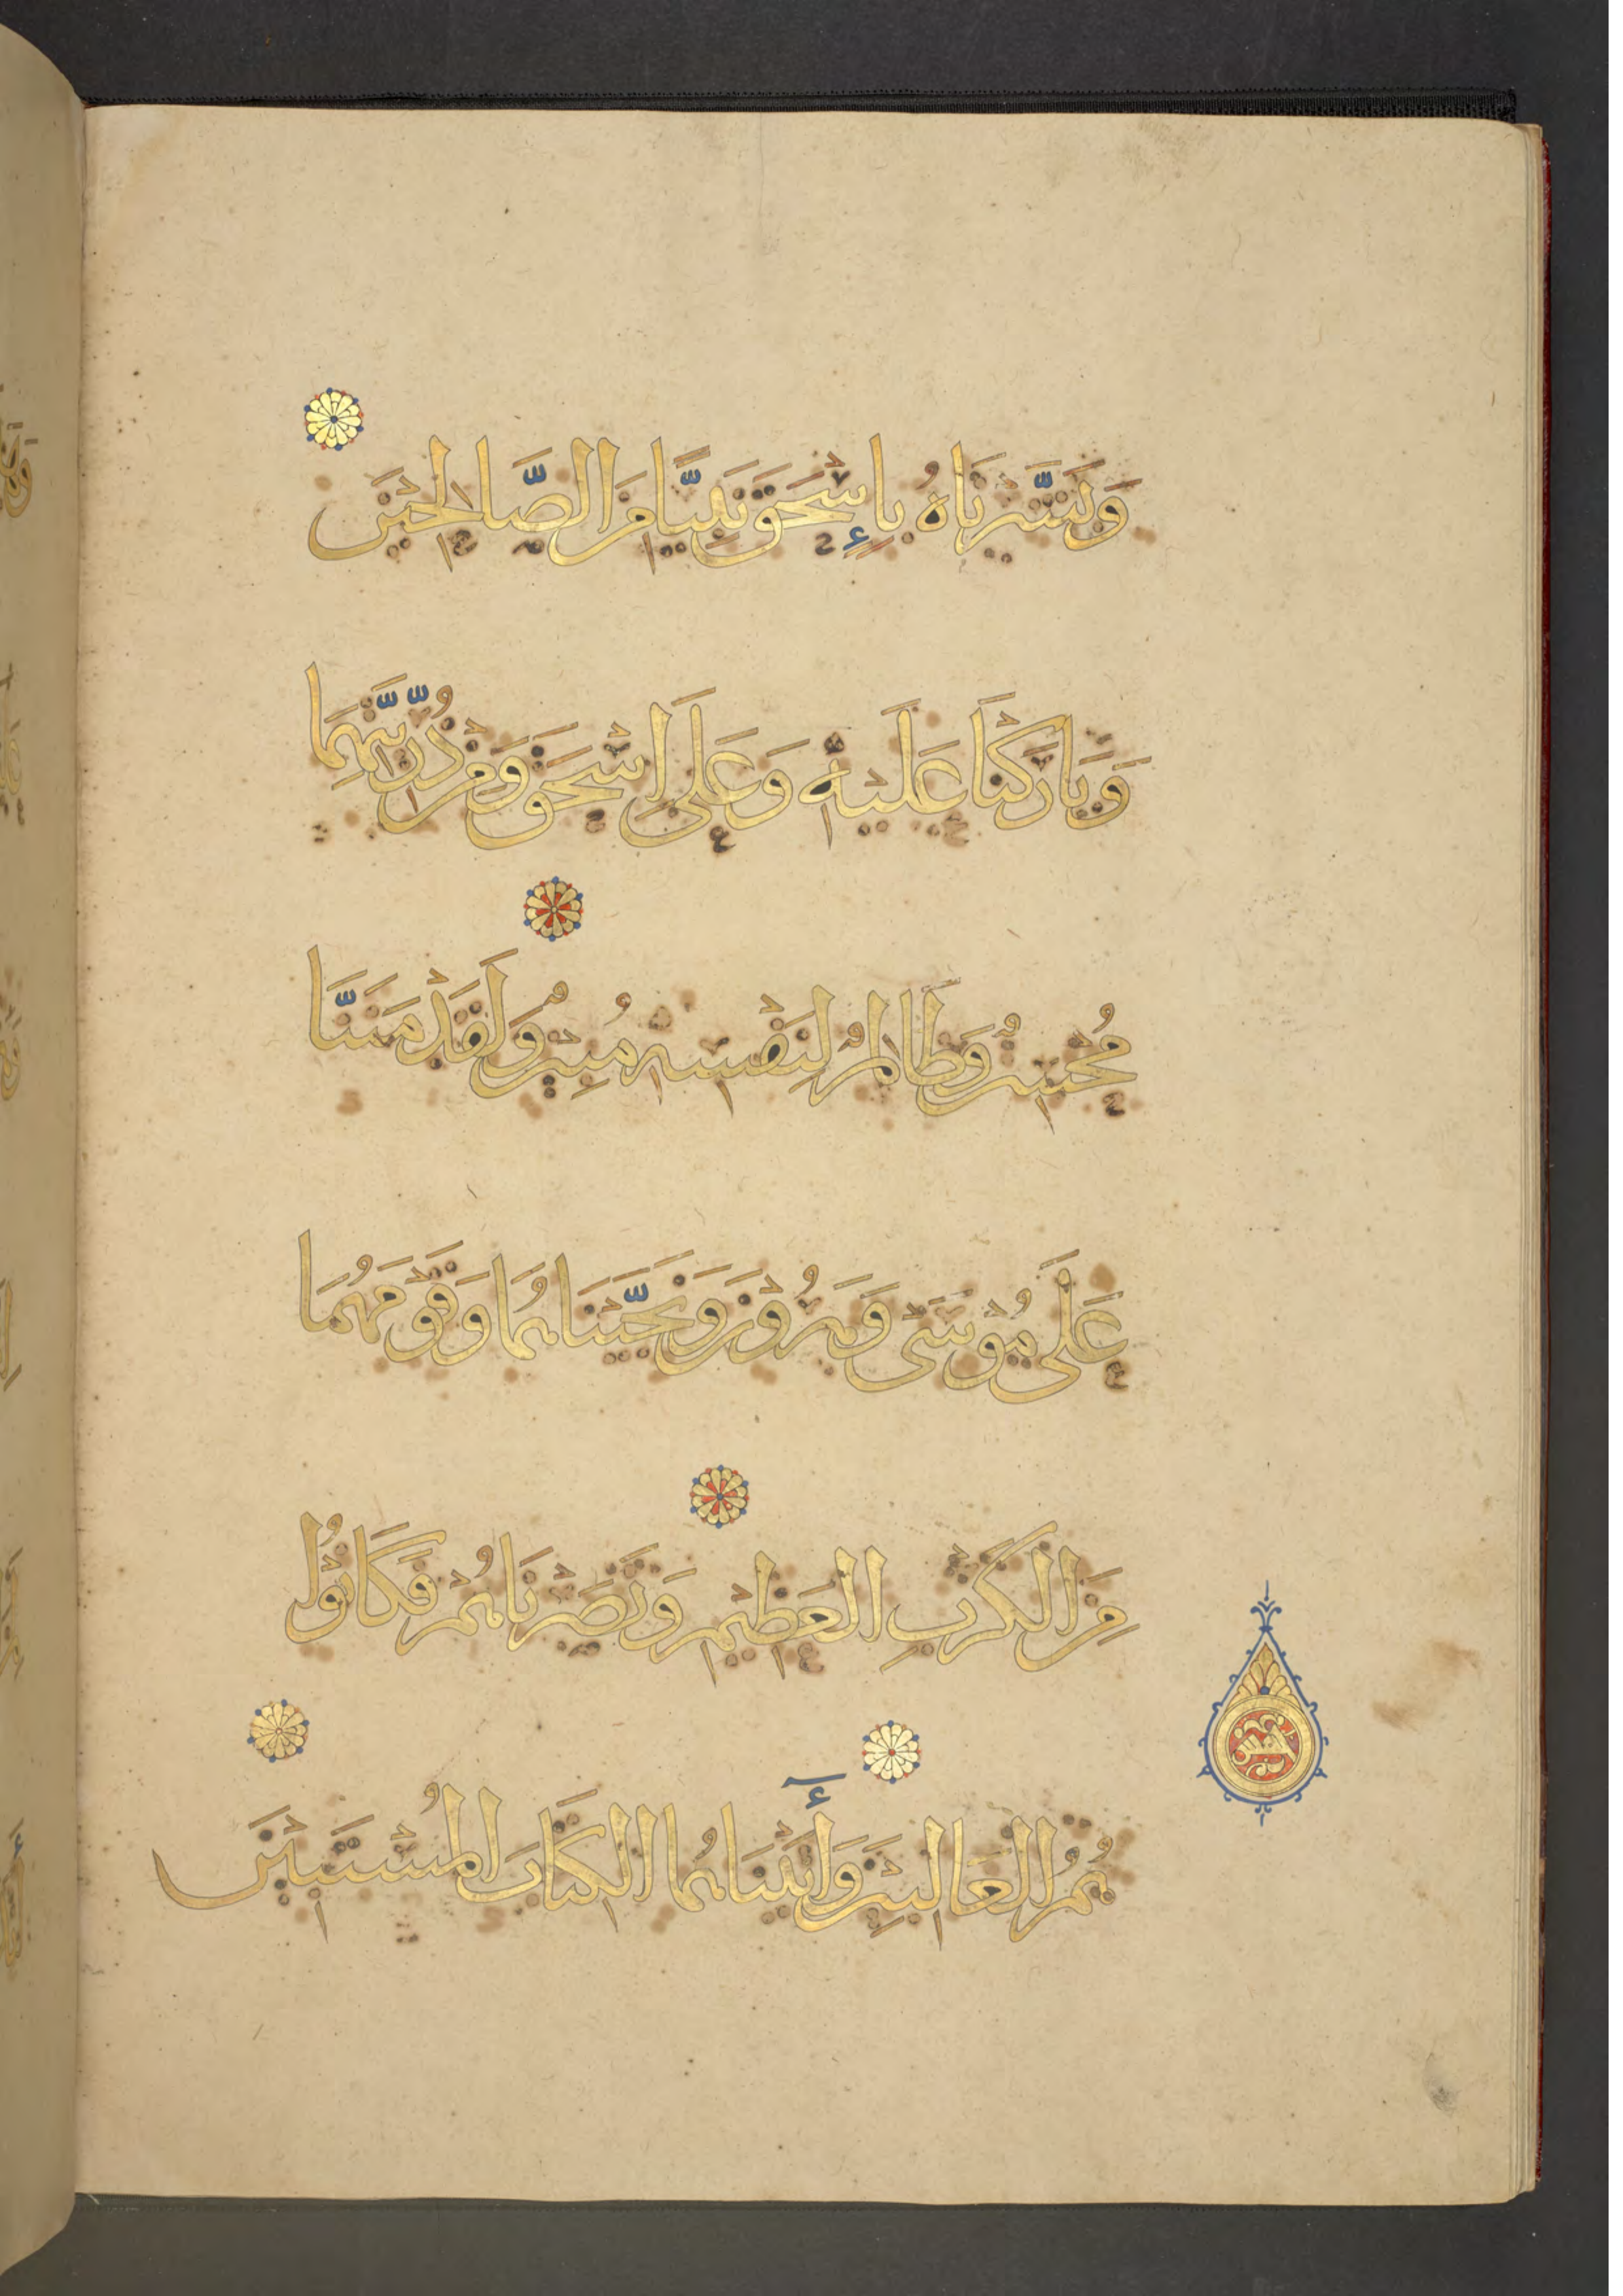 وَبَشَّرْنَاهُ بِإِسْحَقَ نَبِيًّا مِنَ الصَّالِحِيْنَ
وَبَارَكْنَا عَلَيْهِ وَعَلَى اِسْحَقَ وَمِنْ ذُرِّيَّتِهِمَا
مُحْسِنٌ وَظَالِمٌ لِنَفْسِهِ مُبِيْنٌ وَلَقَدْ مَنَنَّا
عَلَى مُوْسَى وَهَرُوْنَ وَنَجَّيْنَاهُمَا وَقَوْمَهُمَا
مِنَ الْكَرْبِ الْعَظِيْمِ وَنَصَرْنَاهُمْ فَكَانُوْا
هُمُ الْغَالِبِيْنَ وَأٓتَيْنَاهُمَا الْكِتَابَ الْمُسْتَبِيْنَ